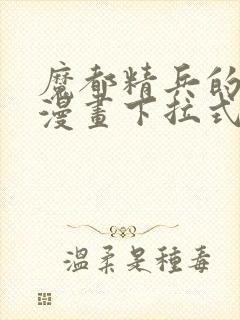 魔都精兵的
漫畫下拉式
溫柔是種毒